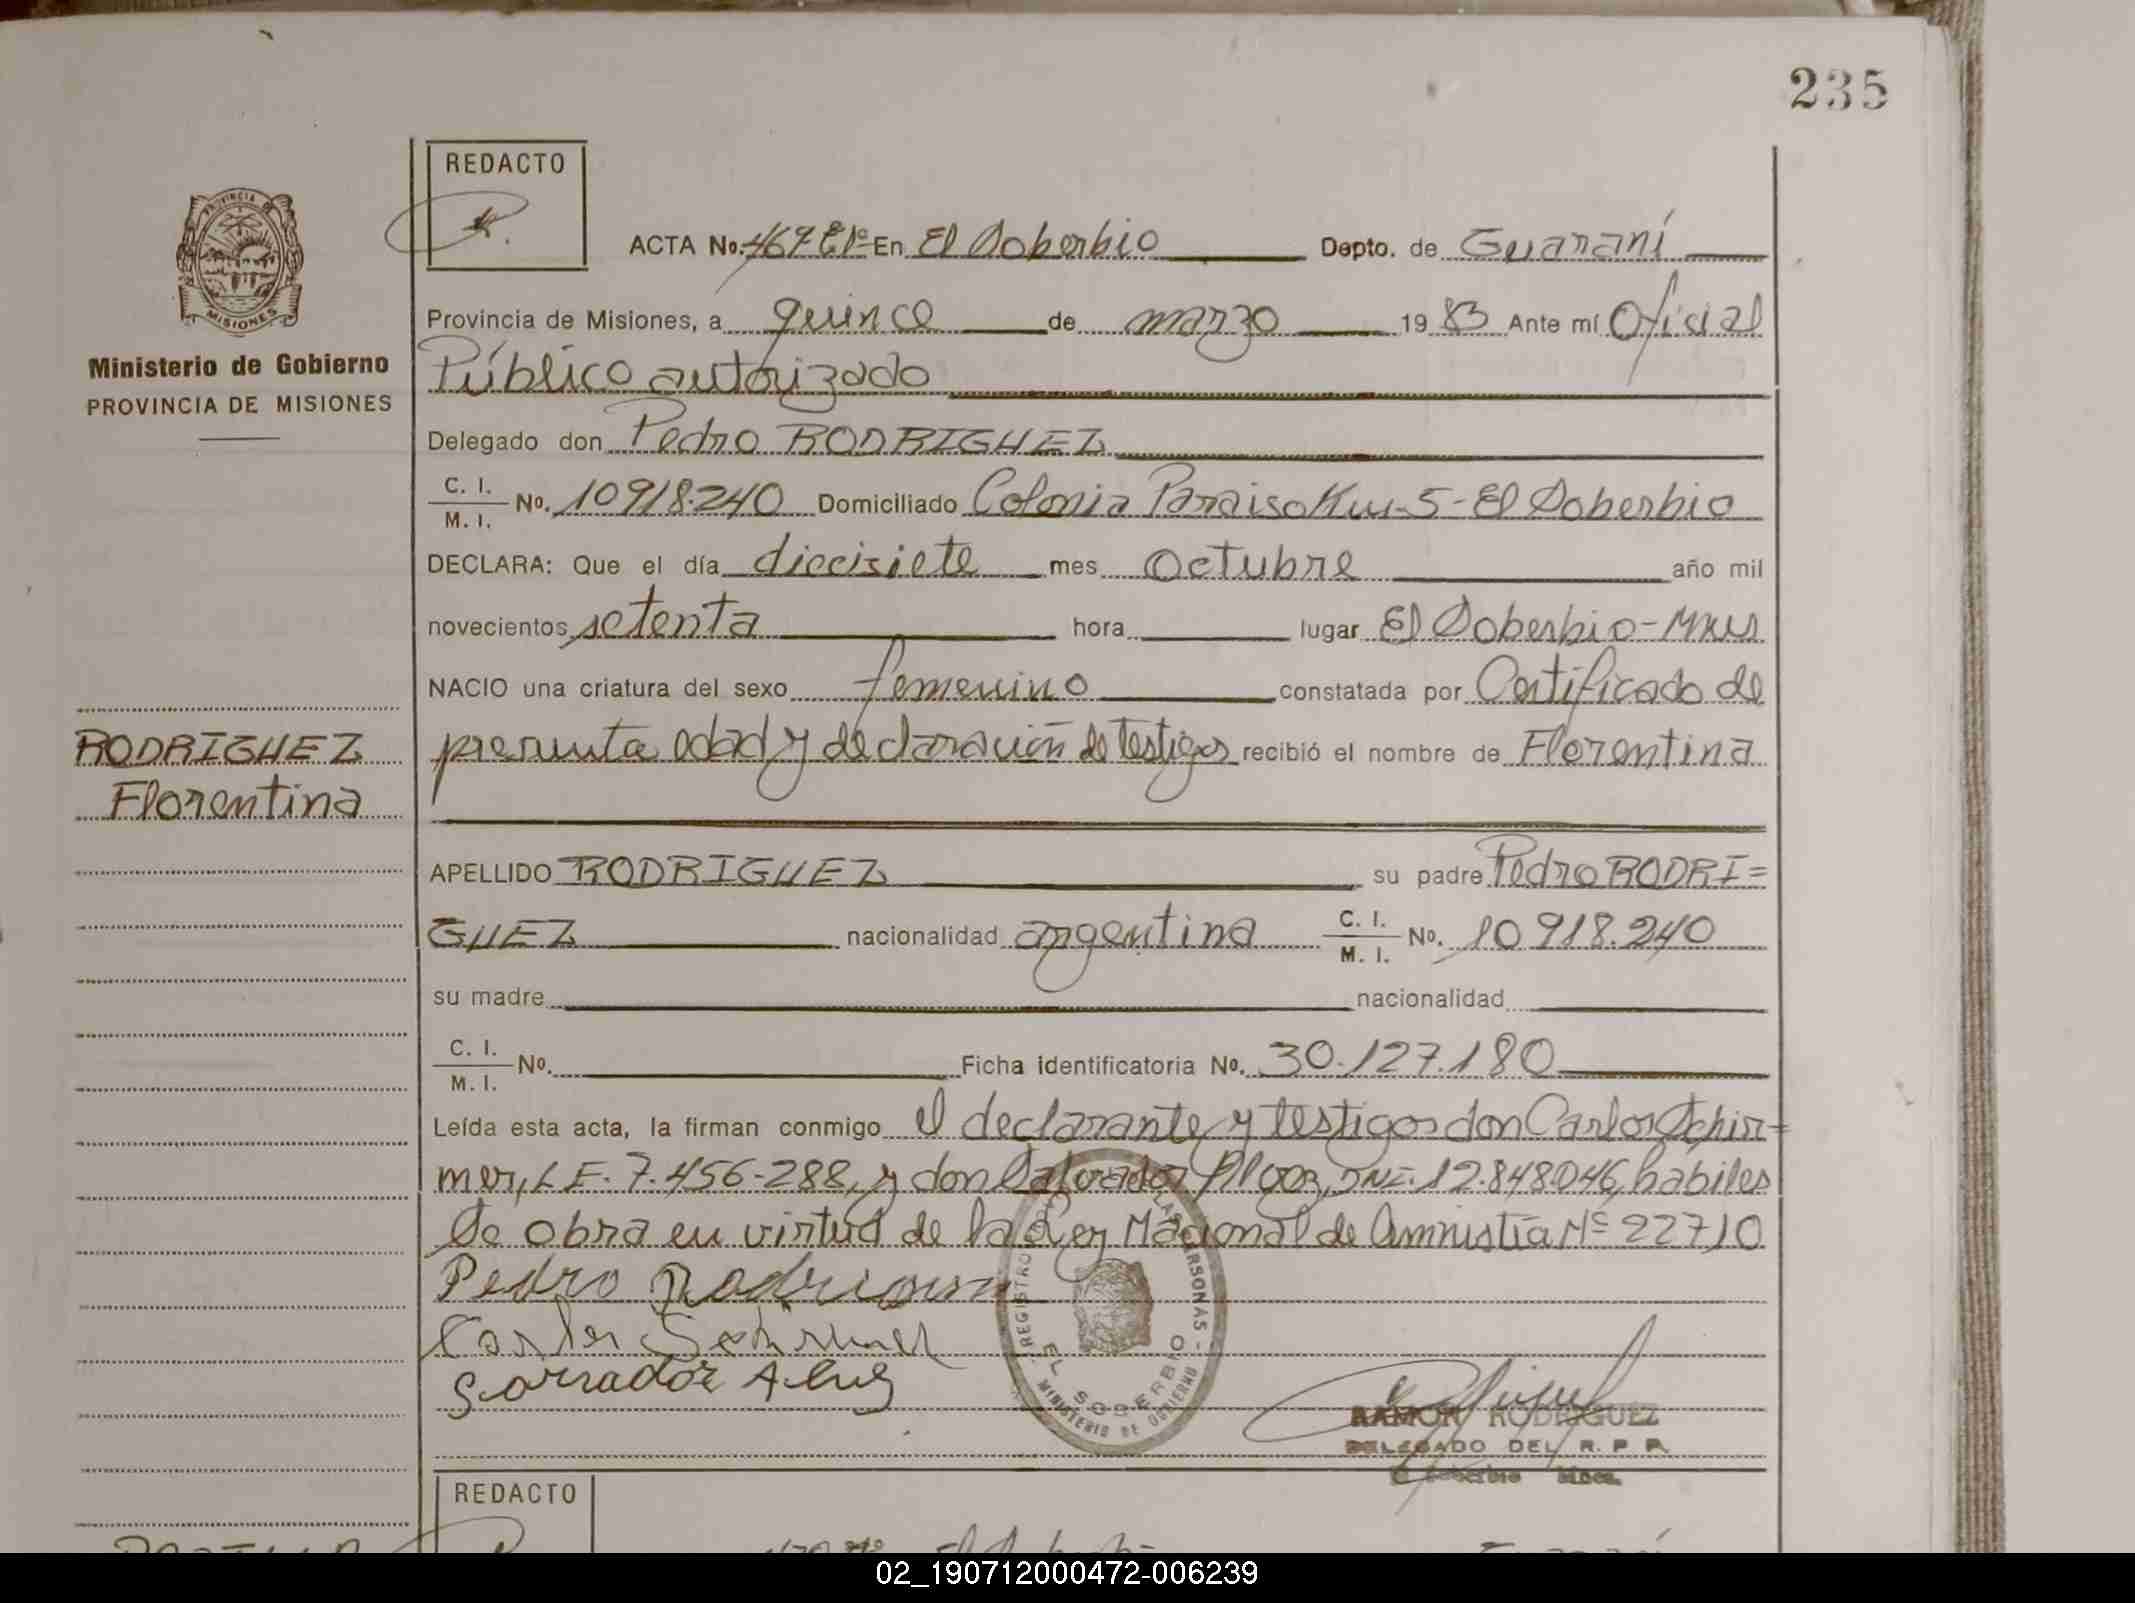 235
REDACTO
PROVINCIA DE
MISIONES
Ministerio de Gobierno
PROVINCIA DE MISIONES
ACTA No. 469 En El Soberbio Depto. de Guaraní
Provincia de Misiones, a quince de marzo 1983 Ante mí Oficial
Público autorizado
Delegado don Pedro RODRIGUEZ
C. I.
M. I. No. 10918.240 Domiciliado Colonia Paraiso Km-5-El Soberbio
DECLARA: Que el día diecisiete mes octubre año mil
novecientos setenta hora lugar El Soberbio-Mnes
NACIO una criatura del sexo femenino constatada por Certificado de
presunta edad y declaración de testigos recibió el nombre de Florentina
RODRIGUEZ
Florentina
APELLIDO RODRIGUEZ su padre Pedro RODRI=
GUEZ nacionalidad argentina C. I. M. I. No. 10918.240
su madre nacionalidad
C. I.
M. I. No. Ficha identificatoria No. 30.127.180
Leída esta acta, la firman conmigo el declarante y testigos don Carlos Schir=
mer, L E. 7.456-288, y don Salvador DNI. 12.848.046, habiles
Se obra en virtud de la Ley Nacional de Amnistía Nº 22710
Pedro
Carlos
REGISTRO PERSONAS - EL SOBERBIO
MINISTERIO DE GOBIERNO
RAMON RODRIGUEZ
DELEGADO DEL R. P. P.
El Soberbio Mnes.
REDACTO
02_190712000472-006239